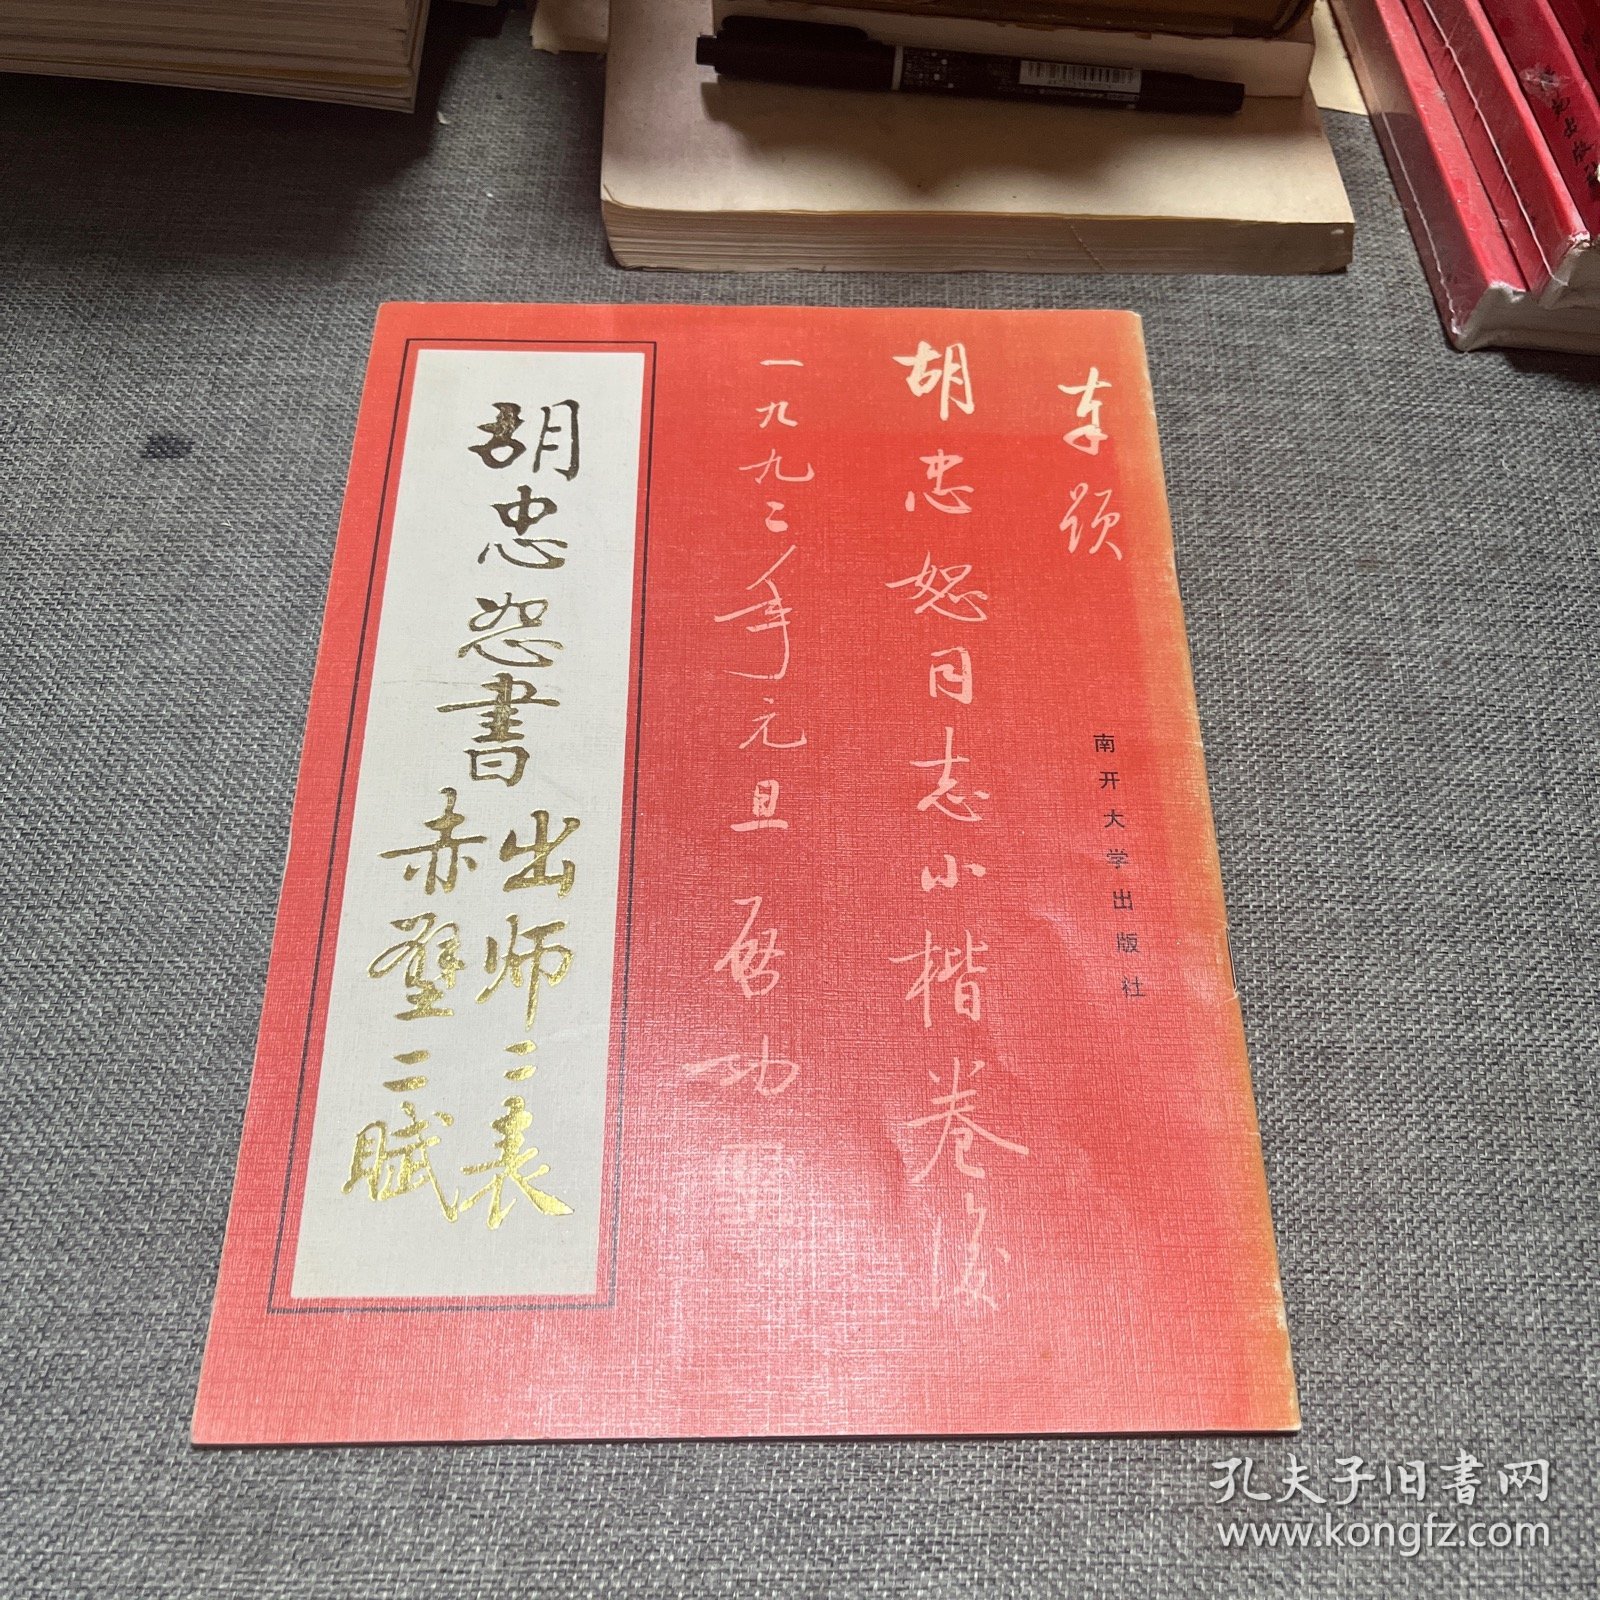 奉题
胡忠恕同志小楷卷后
一九九二年元旦 启功
南开大学出版社
胡忠恕書
出师二表
赤壁二赋
孔夫子旧书网
www.kongfz.com